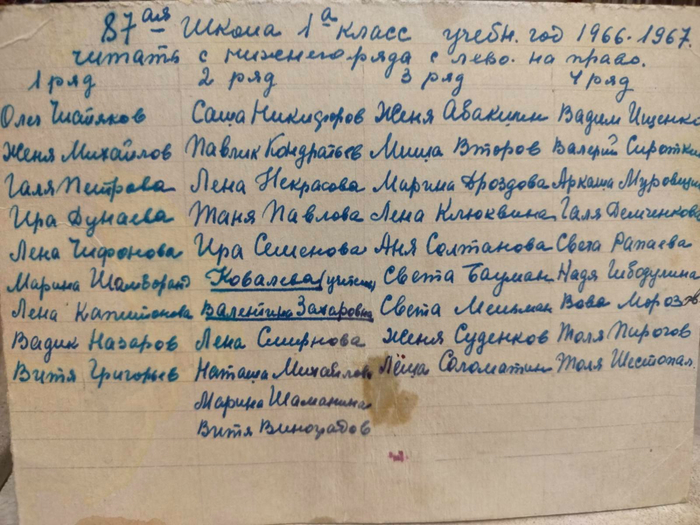 87ая школа 1а класс учебн. год 1966-1967.
читать с нижнего ряда с лево. на право.
1 ряд 2 ряд 3 ряд 4 ряд
Олег Шатяков Саша Никифоров Женя Абакишин Вадим Ищенко
Женя Михайлов Павлик Кондратьев Миша Второв Валерий Сироткин
Галя Петрова Лена Некрасова Марина Дроздова Аркаша Муровщик
Ира Дунаева Таня Павлова Лена Клюквина Галя Демченкова
Лена Чифонова Ира Семенова Аня Солтанова Света Рапаева
Марина Ковалева (учитель) Света Бауман Надя Гибодулина
Лена Капитонова Валентина Захаровна Света Мельман Вова Морозов
Вадик Назаров Лена Смирнова Женя Суденков Толя Пирогов
Витя Григорьев Наташа Михайлова Лёша Соломатин Толя Шестопал.
Марина Шаманина
Витя Виноградов